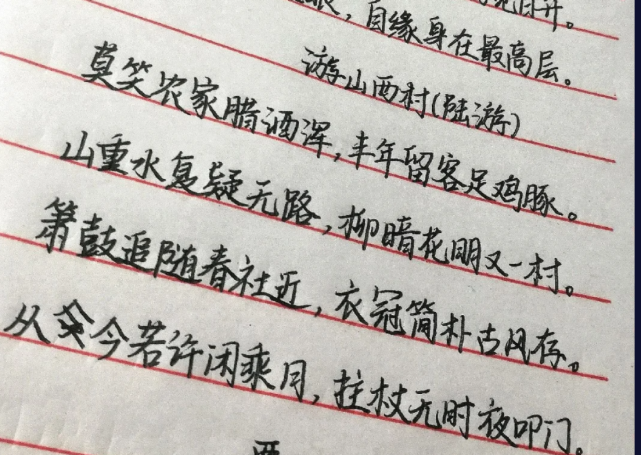 自缘身在最高层。
游山西村(陆游)
莫笑农家腊酒浑,丰年留客足鸡豚。
山重水复疑无路,柳暗花明又一村。
箫鼓追随春社近,衣冠简朴古风存。
从今若许闲乘月,拄杖无时夜叩门。